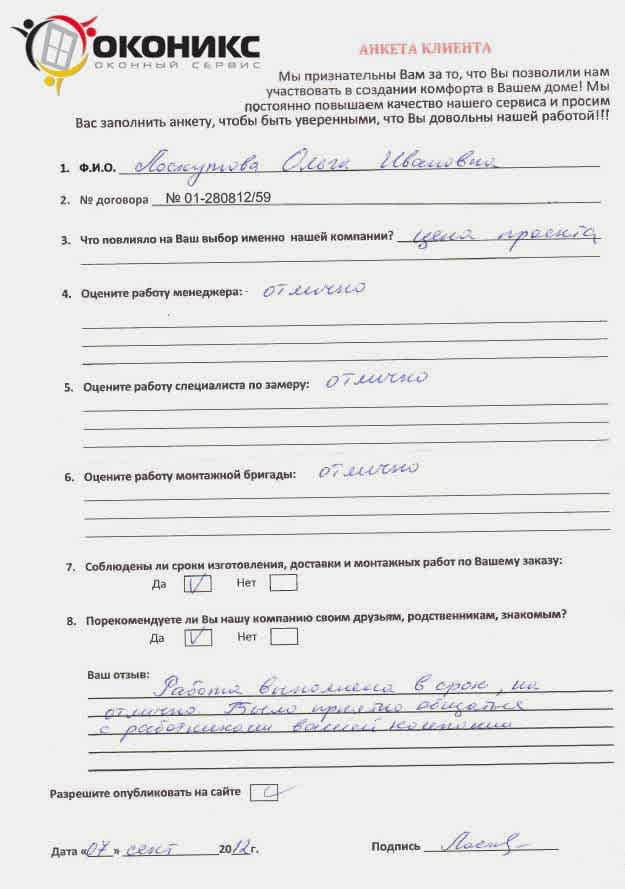 ОКОНИКС
ОКОННЫЙ СЕРВИС
АНКЕТА КЛИЕНТА
Мы признательны Вам за то, что Вы позволили нам
участвовать в создании комфорта в Вашем доме! Мы
постоянно повышаем качество нашего сервиса и просим
Вас заполнить анкету, чтобы быть уверенными, что Вы довольны нашей работой!!!
1. Ф.И.О. Лоскутова Ольга Ивановна
2. № договора № 01-280812/59
3. Что повлияло на Ваш выбор именно нашей компании? цена проекта
4. Оцените работу менеджера: отлично
5. Оцените работу специалиста по замеру: отлично
6. Оцените работу монтажной бригады: отлично
7. Соблюдены ли сроки изготовления, доставки и монтажных работ по Вашему заказу:
Да Нет
8. Порекомендуете ли Вы нашу компанию своим друзьям, родственникам, знакомым?
Да Нет
Ваш отзыв:
Работа выполнена в срок, на
отлично. Было приятно общаться
с работниками вашей компании
Разрешите опубликовать на сайте
Дата «07» сент 2012г. Подпись